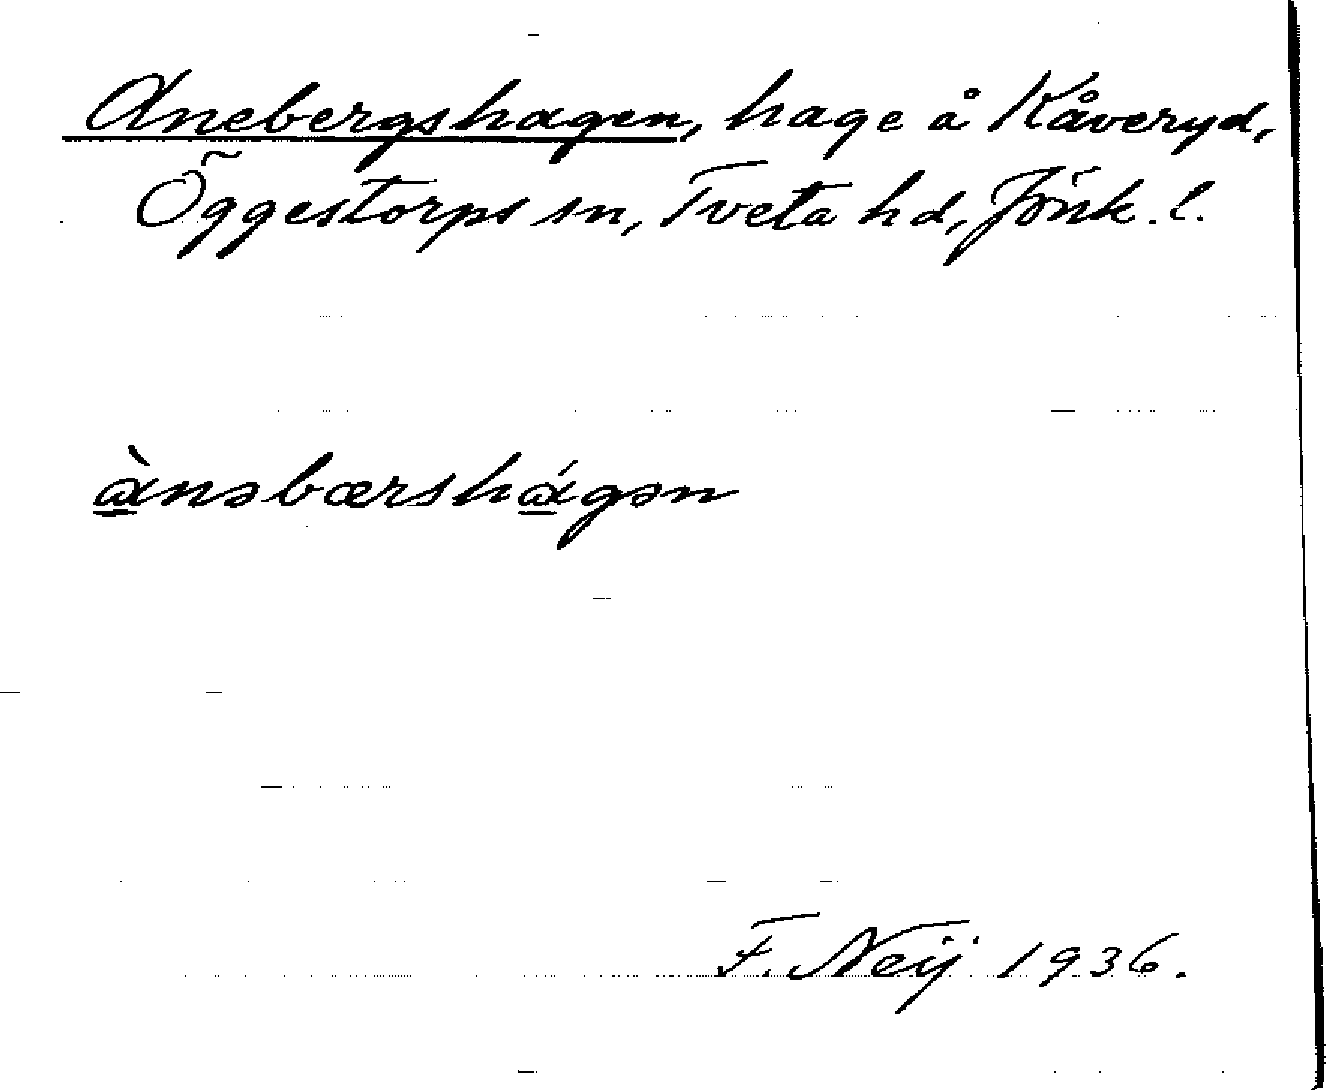 Anebergshagen, hage å Kåveryd,
Öggestorps sn, Tveta hd, Jönk. l.
ɑ̀nəbærshɑ́gən
F. Neij 1936.